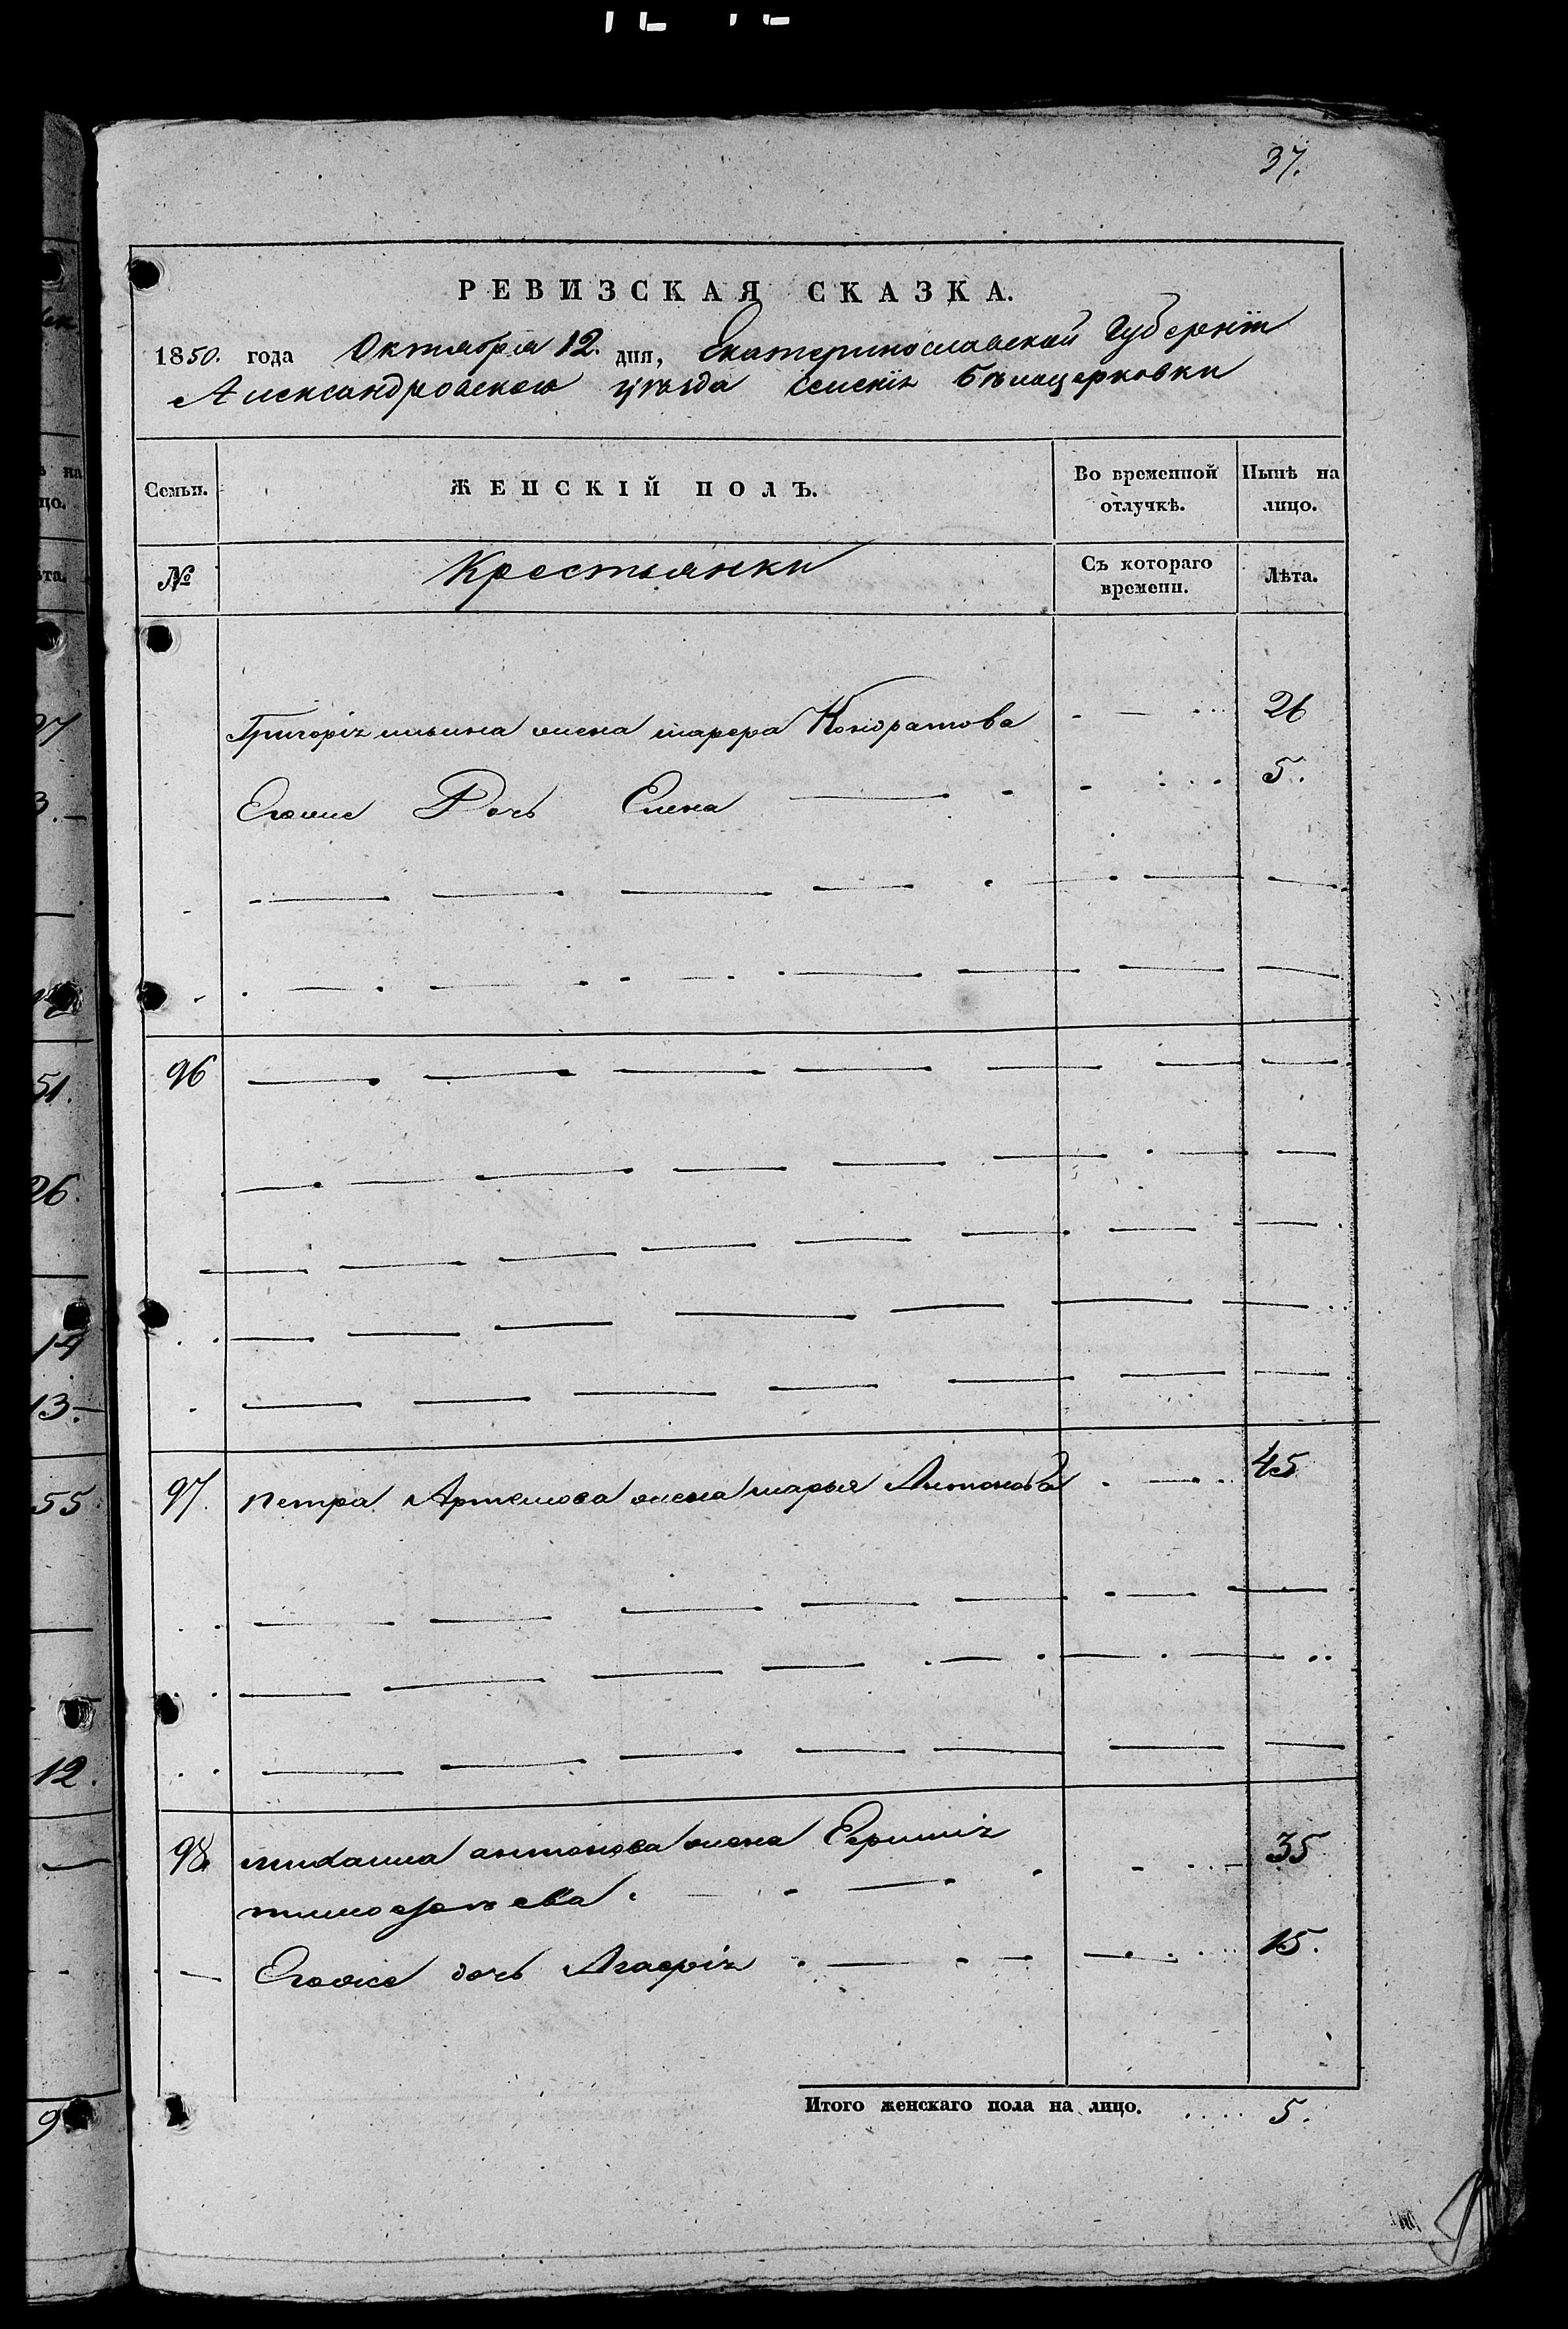 37.
РЕВИЗСКАЯ СКАЗКА.
1850. года Октября 12. дня, Екатеринославской Губерніи
Александровскаго уѣзда селенія Бѣлоцерковки
Семьи.
ЖЕНСКІЙ ПОЛЪ.
Во временной отлучкѣ.
Нынѣ на лицо.
№
Крестьянки
Съ котораго времени.
Лѣта.
Григорія Ильина жена Марфа Кондратова 26
Егоже Дочь Елена 5.
96
97. Петра Артемова жена марья Антонова 45
98. михайла антонова жена Ефимія 35
тимофѣева
Егоже дочь Агафія 15.
Итого женскаго пола на лицо. 5.
ѣ на
цо.
ѣта.
97
3.
51.
26.
14
13.
55
12.
9